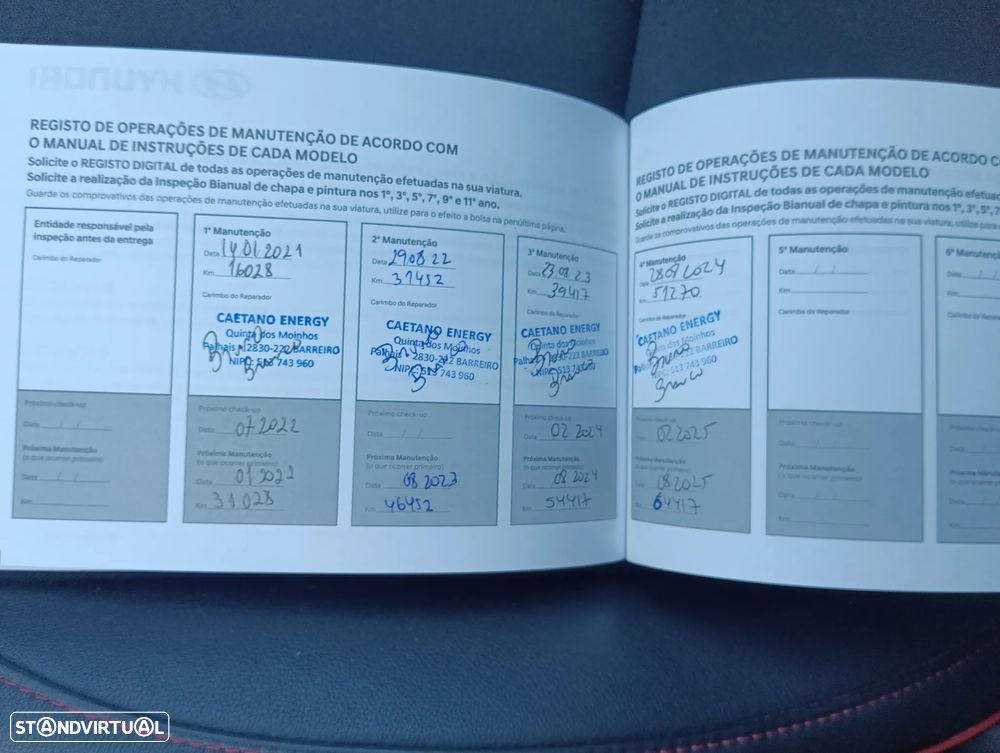 HYUNDAI
REGISTO DE OPERAÇÕES DE MANUTENÇÃO DE ACORDO COM
O MANUAL DE INSTRUÇÕES DE CADA MODELO
Solicite o REGISTO DIGITAL de todas as operações de manutenção efetuadas na sua viatura.
Solicite a realização da Inspeção Bianual de chapa e pintura nos 1º, 3º, 5º, 7º, 9º e 11º ano.
Guarde os comprovativos das operações de manutenção efetuadas na sua viatura, utilize para o efeito a bolsa na penúltima página.
Entidade responsável pela
inspeção antes da entrega
Carimbo do Reparador
Próximo check-up
Data / /
Próxima Manutenção
(o que ocorrer primeiro)
Data / /
Km
1ª Manutenção
Data 14.01.2021
Km 16028
Carimbo do Reparador
CAETANO ENERGY
Quinta dos Moinhos
Palhais 2830-222 BARREIRO
NIPC: 513 743 960
Próximo check-up
Data 07.2022
Próxima Manutenção
(o que ocorrer primeiro)
Data 01
Km 31028
2ª Manutenção
Data 29.08.22
Km 31452
Carimbo do Reparador
CAETANO ENERGY
Quinta dos Moinhos
Palhais 2830-222 BARREIRO
NIPC: 513 743 960
Próximo check-up
Data / /
Próxima Manutenção
(o que ocorrer primeiro)
Data 08 2023
Km 46452
3ª Manutenção
Data 23.08.23
Km 39417
Carimbo do Reparador
CAETANO ENERGY
Quinta dos Moinhos
Palhais 2830-222 BARREIRO
NIPC: 513 743 960
Próximo check-up
Data 02 2024
Próxima Manutenção
(o que ocorrer primeiro)
Data 08 2024
Km 54417
REGISTO DE OPERAÇÕES DE MANUTENÇÃO DE ACORDO C
O MANUAL DE INSTRUÇÕES DE CADA MODELO
Solicite o REGISTO DIGITAL de todas as operações de manutenção efetuad
Solicite a realização da Inspeção Bianual de chapa e pintura nos 1º, 3º, 5º, 7º
Guarde os comprovativos das operações de manutenção efetuadas na sua viatura, utilize para
4ª Manutenção
Data 28 2024
Km 51270
Carimbo do Reparador
CAETANO ENERGY
dos Moinhos
BARREIRO
NIPC: 513 743 960
Próximo check-up
02 2025
Próxima Manutenção
(o que ocorrer primeiro)
08 2025
64417
5ª Manutenção
Data / /
Km
Carimbo do Reparador
Próximo check-up
Data / /
Próxima Manutenção
(o que ocorrer primeiro)
Data / /
Km
6ª Manutenção
Data / /
Km
Carimbo do Repara
Próximo check-
Data
Próxima Manu
Data
Km
STANDVIRTUAL